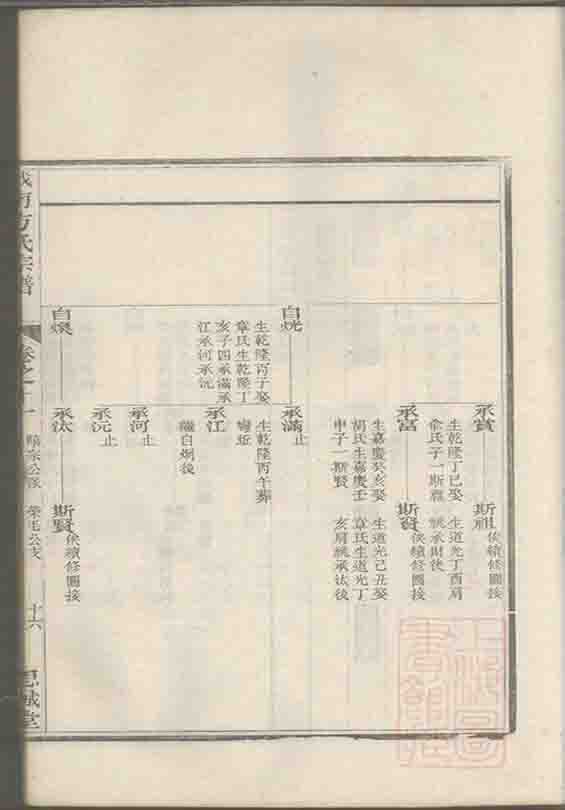 承賞
生乾隆丁巳娶
俞氏子一斯祖
斯祖
俟續修圖接
生道光丁酉肩
祧承財後
承富
生嘉慶癸亥娶
胡氏生嘉慶壬
申子一斯賢
斯賢
俟續修圖接
生道光己丑娶
章氏生道光丁
亥肩祧承汰後
自㶷
生乾隆丙子娶
章氏生乾隆丁
亥子四承滿承
江承河承沅
承滿
止
生乾隆丙午葬
承江
繼自炯後
承河
止
承沅
止
自㷍
承汰
斯賢
俟續修圖接
方氏宗譜
卷之十一
榮毛公支
十六
思誠堂